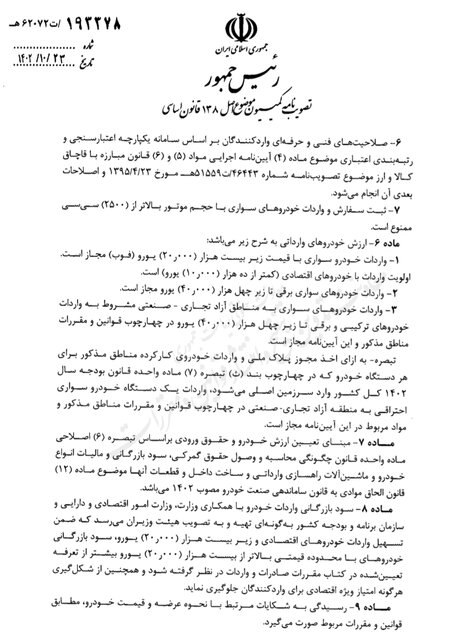 ۱۹۳۲۷۸/ت۶۲۰۷۲هـ
شماره
۱۴۰۲/۱۰/۲۳
تاریخ
جمهوری اسلامی ایران
رئیس جمهور
تصویب‌نامه کمیسیون موضوع اصل ۱۳۸ قانون اساسی
۶- صلاحیت‌های فنی و حرفه‌ای واردکنندگان بر اساس سامانه یکپارچه اعتبارسنجی و
رتبه‌بندی اعتباری موضوع ماده (۴) آیین‌نامه اجرایی مواد (۵) و (۶) قانون مبارزه با قاچاق
کالا و ارز موضوع تصویب‌نامه شماره ۴۶۴۴۳/ت۵۱۵۵۹هـ مورخ ۱۳۹۵/۴/۲۳ و اصلاحات
بعدی آن انجام می‌شود.
۷- ثبت سفارش و واردات خودروهای سواری با حجم موتور بالاتر از (۲۵۰۰) سی‌سی
ممنوع است.
ماده ۶- ارزش خودروهای وارداتی به شرح زیر می‌باشد:
۱- واردات خودرو سواری با قیمت زیر بیست هزار (۲۰٫۰۰۰) یورو (فوب) مجاز است.
اولویت واردات با خودروهای اقتصادی (کمتر از ده هزار (۱۰٫۰۰۰) یورو) است.
۲- واردات خودروهای سواری برقی تا زیر چهل هزار (۴۰٫۰۰۰) یورو مجاز است.
۳- واردات خودروهای سواری به مناطق آزاد تجاری - صنعتی مشروط به واردات
خودروهای ترکیبی و برقی تا زیر چهل هزار (۴۰٫۰۰۰) یورو در چهارچوب قوانین و مقررات
مناطق مذکور و این آیین‌نامه مجاز است.
تبصره- به ازای اخذ مجوز پلاک ملی و واردات خودروی کارکرده مناطق مذکور برای
هر دستگاه خودرو که در چهارچوب بند (ث) تبصره (۷) ماده واحده قانون بودجه سال
۱۴۰۲ کل کشور وارد سرزمین اصلی می‌شود، واردات یک دستگاه خودرو سواری
احتراقی به منطقه آزاد تجاری-صنعتی در چهارچوب قوانین و مقررات مناطق مذکور و
مواد مربوط در این آیین‌نامه مجاز است.
ماده ۷- مبنای تعیین ارزش خودرو و حقوق ورودی براساس تبصره (۶) اصلاحی
ماده واحده قانون چگونگی محاسبه و وصول حقوق گمرکی، سود بازرگانی و مالیات انواع
خودرو و ماشین‌آلات راهسازی وارداتی و ساخت داخل و قطعات آنها موضوع ماده (۱۲)
قانون الحاق موادی به قانون ساماندهی صنعت خودرو مصوب ۱۴۰۲ می‌باشد.
ماده ۸- سود بازرگانی واردات خودرو با همکاری وزارت، وزارت امور اقتصادی و دارایی و
سازمان برنامه و بودجه کشور به‌گونه‌ای تهیه و به تصویب هیئت وزیران می‌رسد که ضمن
تسهیل واردات خودروهای اقتصادی و زیر بیست هزار (۲۰٫۰۰۰) یورو، سود بازرگانی
خودروهای با محدوده قیمتی بالاتر از بیست هزار (۲۰٫۰۰۰) یورو بیشتر از تعرفه
تعیین‌شده در کتاب مقررات صادرات و واردات در نظر گرفته شود و همچنین از شکل‌گیری
هرگونه امتیاز ویژه اقتصادی برای واردکنندگان جلوگیری نماید.
ماده ۹- رسیدگی به شکایات مرتبط با نحوه عرضه و قیمت خودرو، مطابق
قوانین و مقررات مربوط صورت می‌گیرد.